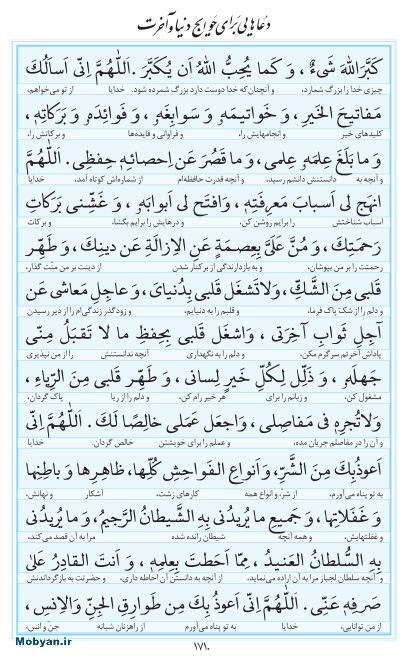 دعاهایی برای حوایج دنیا و آخرت
كَبَّرَ اللهَ شَىءٌ ، وَ كَما يُحِبُّ اللهُ اَن يُكَبَّرَ . اَللّٰهُمَّ اِنّى اَسأَلُكَ
چیزی خدا را بزرگ شمارد، و آنچنان‌که خدا دوست دارد بزرگ شمرده شود. خدایا از تو می‌خواهم،
مَفاتيحَ الخَيرِ ، وَ خَواتيمَهٗ وَ سَوابِغَهٗ ، وَ فَوائِدَهٗ وَ بَرَكاتِهٖ ،
کلیدهای خیر و انجامهایش را، و فراوانی و فایده‌ها و برکاتش را،
وَ ما بَلَغَ عِلمَهٗ عِلمى، وَ ما قَصُرَ عَن اِحصائِهٖ حِفظى . اَللّٰهُمَّ
و آنچه به دانستنش دانشم رسید، و آنچه قدرت حافظه‌ام از شماره‌اش کوتاه آمد، خدایا
انهَج لى اَسبابَ مَعرِفَتِهٖ، وَافتَح لى اَبوابَهٗ ، وَ غَشِّنى بَرَكاتِ
اسباب شناختش را برایم روشن کن، و درهایش را برایم بگشا، و برکات
رَحمَتِكَ ، وَ مُنَّ عَلَىَّ بِعِصمَةٍ عَنِ الاِزالَةِ عَن دينِكَ، وَ طَهِّر
رحمتت را بر من بپوشان، و به بازدارندگی از برکنار شدن از دینت بر من منّت گذار،
قَلبى مِنَ الشَّكِّ ، وَلاتَشغَل قَلبى بِدُنياىَ ، وَ عاجِلِ مَعاشى عَن
و دلم را از شک‌ّ پاک فرما، و قلبم را به دنیایم، و زودگذر زندگی‌ام را از دیر رسیدن
آجِلِ ثَوابِ آخِرَتى ، وَاشغَل قَلبى بِحِفظِ ما لا تَقبَلُ مِنّى
پاداش آخرتم سرگرم مکن، و دلم را به نگهداری آنچه ندانستنش را از من نپذیری
جَهلَهٗ ، وَ ذَلِّل لِكُلِّ خَيرٍ لِسانى ، وَ طَهِّر قَلبى مِنَ الرِّياءِ ،
مشغول کن، و زبانم را برای هر خیر رام کن، و دلم را از ریا پاک گردان،
وَلاتُجرِهٖ فى مَفاصِلى ، وَاجعَل عَمَلى خالِصًا لَكَ . اَللّٰهُمَّ اِنّى
و آن را در مفاصلم جریان مده، و عملم را برای خویشتن خالص گردان. خدایا
اَعوذُ بِكَ مِنَ الشَّرِّ، وَ اَنواعِ الفَواحِشِ كُلِّها، ظاهِرِها وَ باطِنِها
به تو پناه می‌آورم، از شرّ، و انواع همه کارهای زشت، آشکار و نهانش،
وَ غَفَلاتِها، وَ جَميعِ ما يُريدُنى بِهِ الشَّيطانُ الرَّجيمُ، وَ ما يُريدُنى
و غفلتهایش، و همه آنچه شیطان رانده شده مرا به آن قصد می‌کند،
بِهِ السُّلطانُ العَنيدُ ، مِمّا اَحَطتَ بِعِلمِهٖ ، وَ اَنتَ القادِرُ عَلىٰ
و آنچه سلطان لجباز مرا به آن اراده می‌نماید، از آنچه به دانستن آن احاطه داری، و حضرتت به بازگرداندنش
صَرفِهٖ عَنّى . اَللّٰهُمَّ اِنّى اَعوذُ بِكَ مِن طَوارِقِ الجِنِّ وَ الاِنسِ ،
از من توانایی، خدایا به تو پناه می‌آورم از راهزنان شبانه جن و انس،
۱۷۱۰
Mobyan.ir